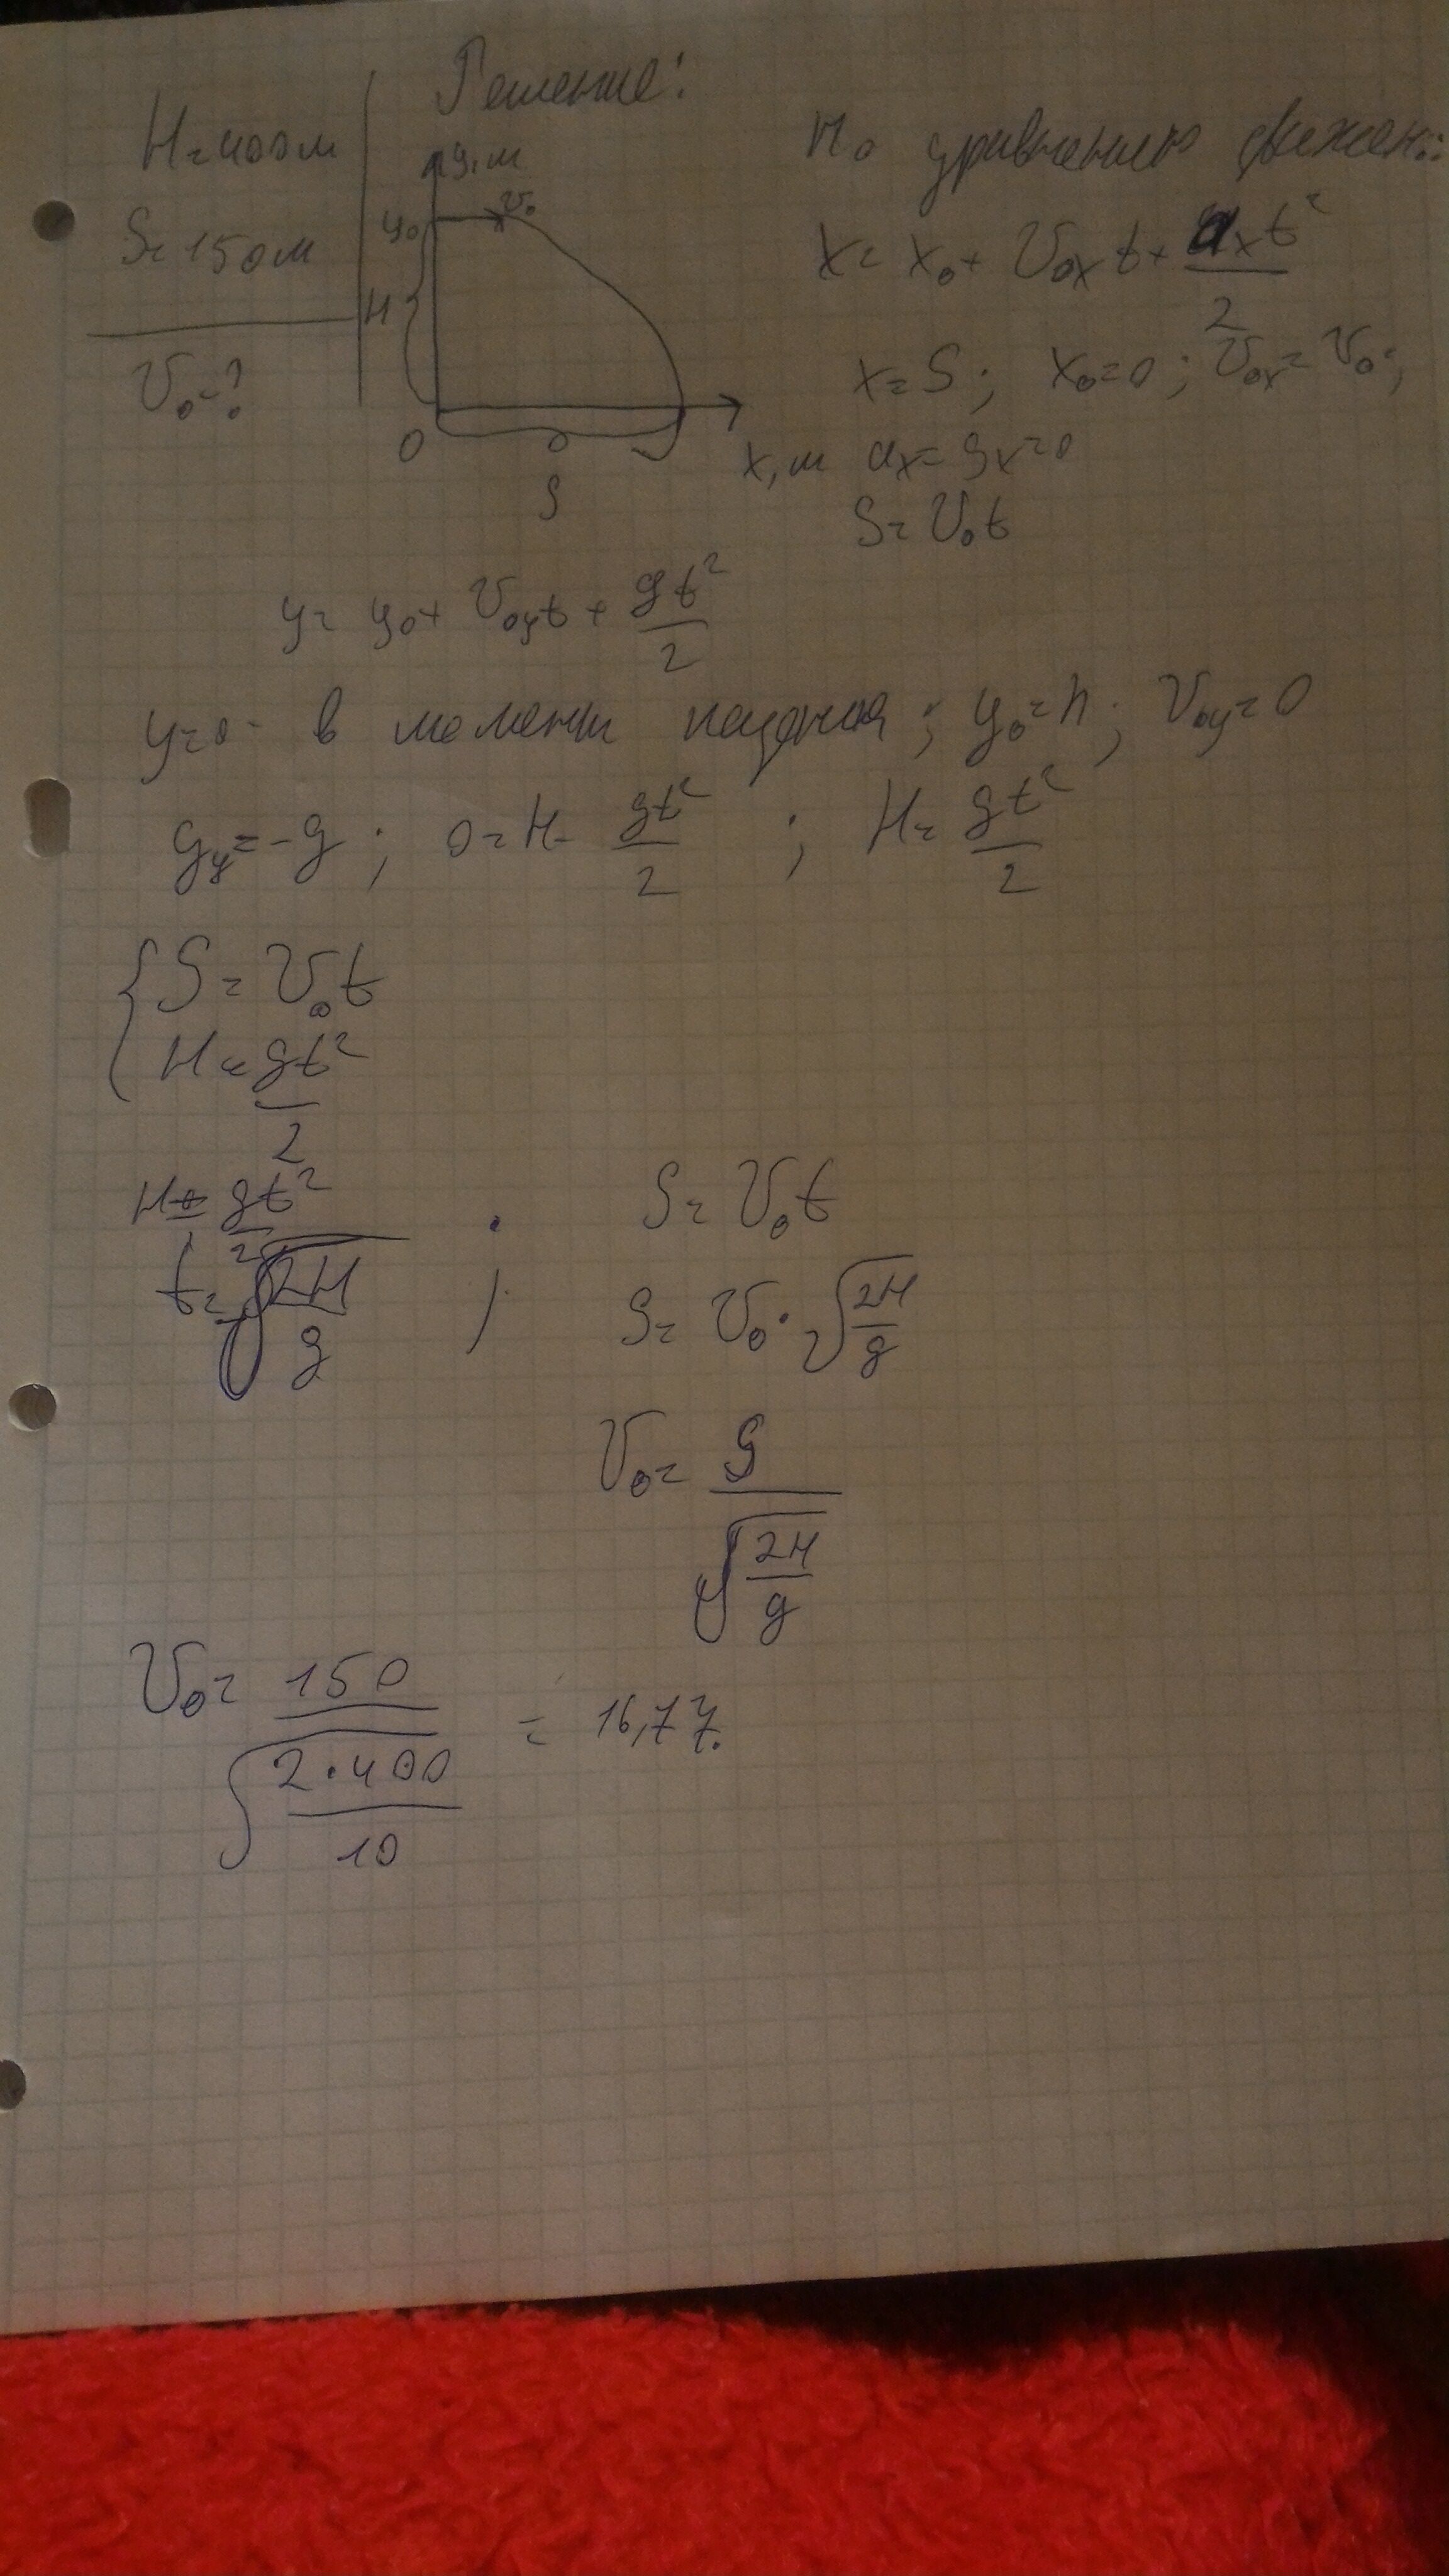 Решение:
H=400м
S=150м
V₀-?
y,м
y₀
V₀
H
0
S
x,м
По уравнению движен.:
x = x₀ + V₀ₓt + aₓt²/2
x=S; x₀=0; V₀ₓ=V₀;
aₓ=gₓ=0
S=V₀t
y = y₀ + V₀yt + gt²/2
y=0 - в момент падения; y₀=h; V₀y=0
gy=-g; 0=H-gt²/2; H=gt²/2
{ S=V₀t
H=gt²/2
H=gt²/2 ; S=V₀t
t=√(2H/g) S=V₀·√(2H/g)
V₀=S/√(2H/g)
V₀=150/√(2·400/10) = 16,77.